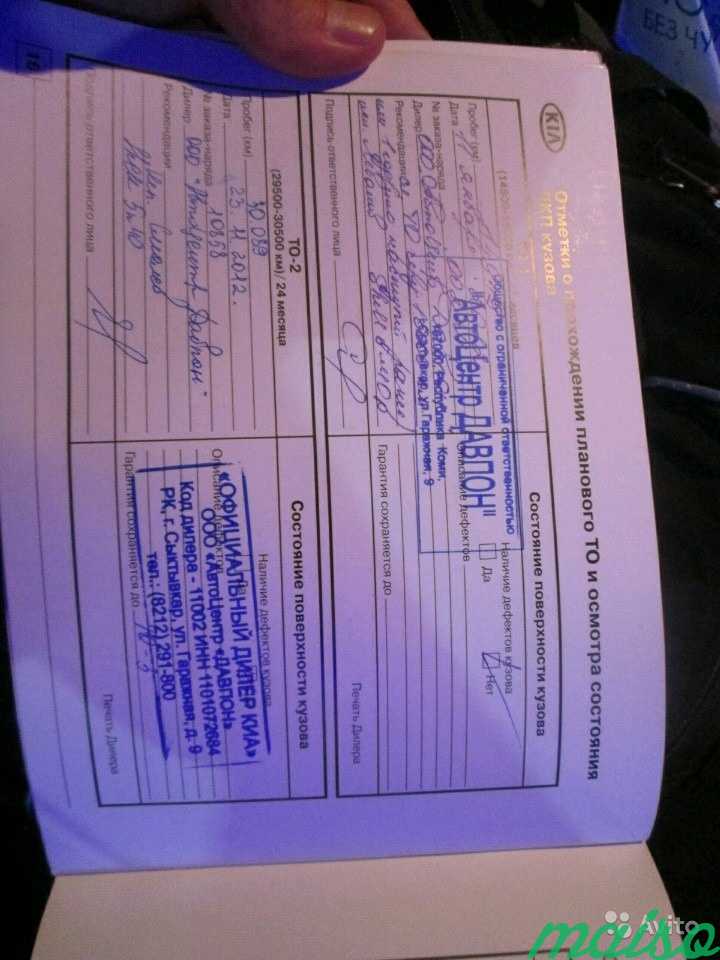 KIA
Отметки о прохождении планового ТО и осмотра состояния
ЛКП кузова
Пробег (км)
Дата
№ заказа-наряда
Дилер
Рекомендации
Подпись ответственного лица
Общество с ограниченной ответственностью
"АвтоЦентр ДАВПОН"
Республика Коми,
г. Сыктывкар, ул. Гаражная, 9
Состояние поверхности кузова
Наличие дефектов кузова
Да
Нет
Описание дефектов
Гарантия сохраняется до
Печать Дилера
ТО-2
(29500-30500 км)/ 24 месяца
Пробег (км) 30 089
Дата 23.11.2012.
№ заказа-наряда 10658
Дилер ООО "АвтоЦентр Давпон"
Рекомендации
Подпись ответственного лица
Состояние поверхности кузова
Наличие дефектов кузова
Да
Описание дефектов
Гарантия сохраняется до ТО-3
Печать Дилера
«ОФИЦИАЛЬНЫЙ ДИЛЕР КИА»
ООО «АвтоЦентр «ДАВПОН»
Код дилера - 11002 ИНН 1101072684
РК, г. Сыктывкар, ул. Гаражная, д. 9
тел.: (8212) 291-800
16
БЕЗ ЧУ
Avito
maiso